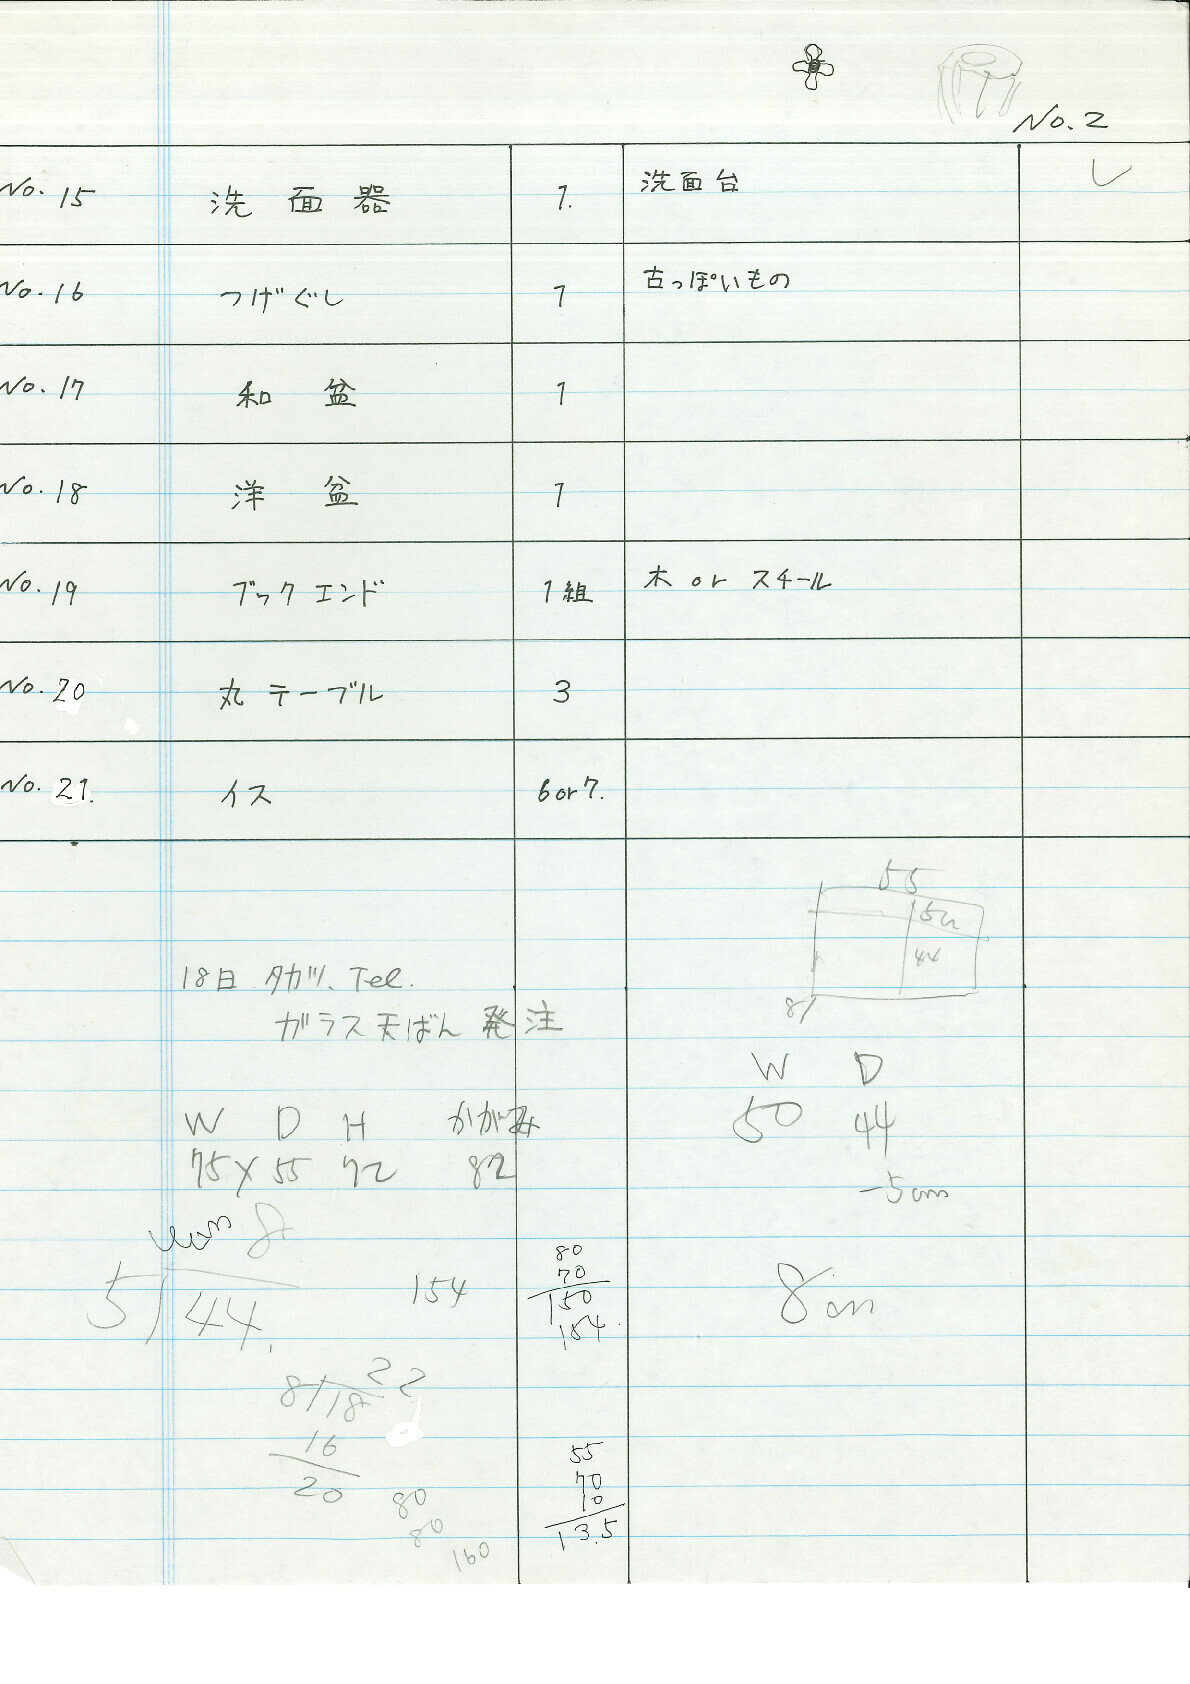 No.2
No. 15 洗面器 1. 洗面台
No. 16 つげぐし 1 古っぽいもの
No. 17 和盆 1
No. 18 洋盆 1
No. 19 ブックエンド 1組 木 or スチール
No. 20 丸テーブル 3
No. 21. イス 6 or 7.
55
44
81
18日 タカツ、Tel.
ガラス天ばん 発注
W D
50 44
-5cm
W D H かがみ
75 × 55 72 82
8
5)44.
154
80
70
150
154.
8cm
22
8/18
16
20
80
80
160
55
70
10
13.5